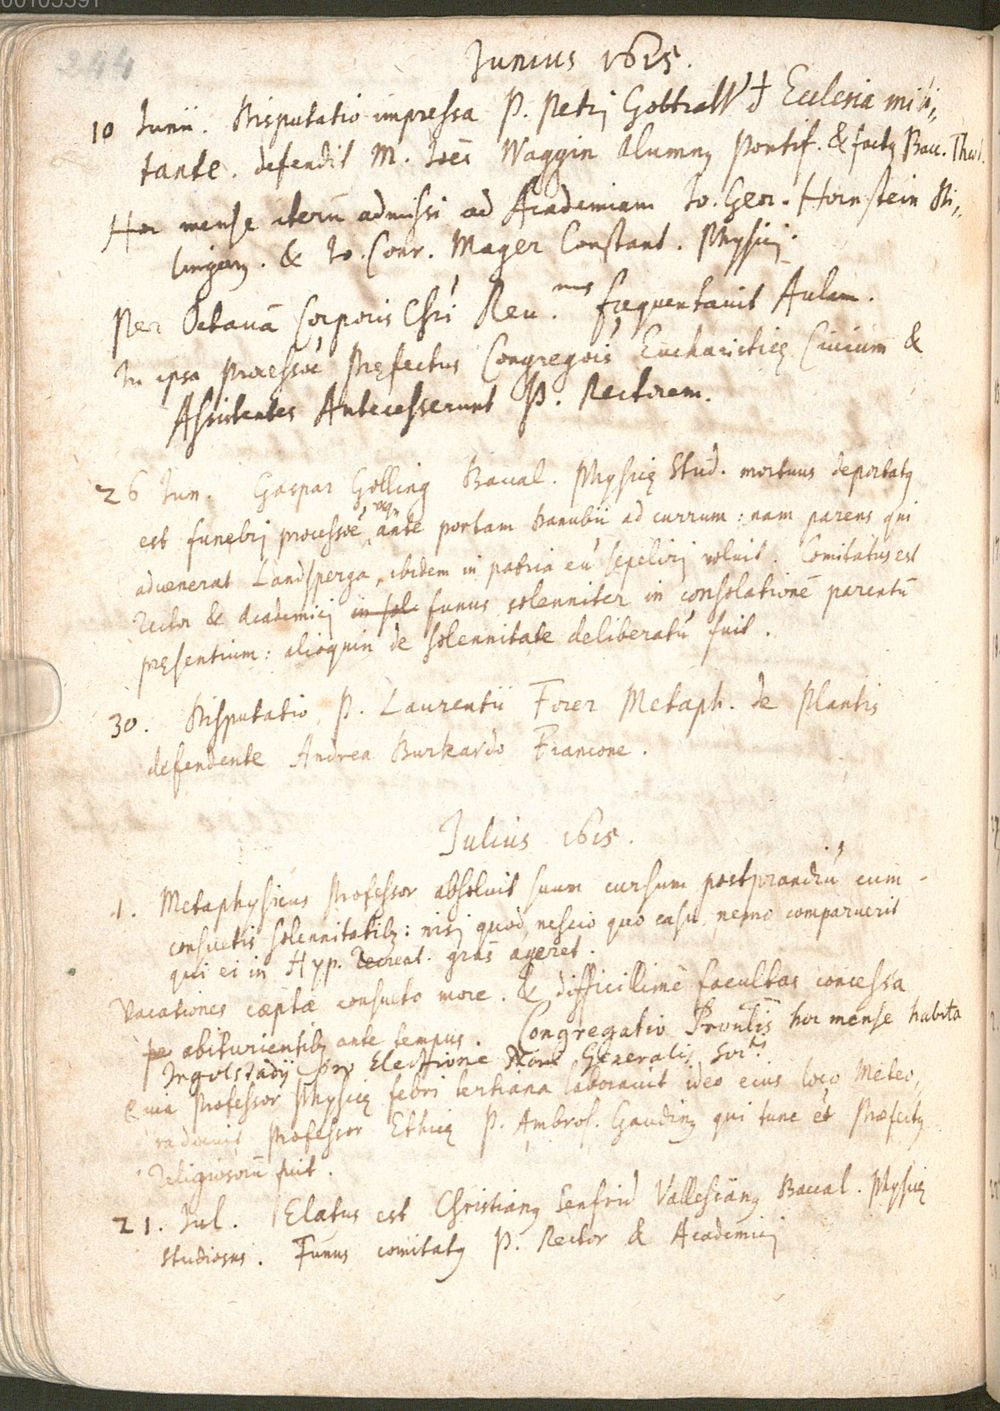 00105391
244
Junius 1615.
10 Junii. Disputatio impressa P. Petrj Gottraw de Ecclesia mili„
tante. defendit M. Joes Waggin Alumnꝰ Pontif. & factꝰ Bacc. Theol.
Hoc mense iterū admissi ad Academiam Jo. Geor. Hornstein Di„
linganꝰ. & Jo. Conr. Mager Constant. Physicj.
Per Octavā Corporis Chri Reu.mus frequentauit Aulam.
In ipsa processoē Pręfectus Congregōis Eucharisticę Ciuium &
Assistentes Antecesserunt P. Rectorem.
26 Jun. Gaspar Golling Baccal. Physicę Stud. mortuus deportatꝰ
est funebrj processoē, ante portam Danubii ad currum: nam parens qui
aduenerat Landsperga, ibidem in patria eū sepelirj voluit. Comitatus est
Rector & Academicj in sol funus solenniter in consolationē parentū
pręsentium: alioquin de solennitate deliberatū fuit.
30. Disputatio P. Laurentii Forer Metaph. de Plantis
defendente Andrea Burkardo Francone.
Julius 1615.
1. Metaphysicus Professor absoluit suum cursum post prandiū cum
consuetis solennitatibꝰ: nisj quod, nescio quo casu, nemo comparuerit
qui ei in Hyp. Recreat. gras ageret.
Vacationes cæptæ consueto more. & difficillimè facultas concessa
abiturientibꝰ ante tempus. Congregatio Prouīlis hoc mense habita
Ingolstadij pro Electione Generalis Soc.tis
Quia Professor Physicę febri tertiana laborauit ideo eius loco Meteo„
ra docuit Professor Ethicę P. Ambros. Gaudinꝰ qui tunc et Præfectꝰ
Religiosorū fuit.
21. Jul. Elatus est Christianꝰ Senfrid Vallesianꝰ Baccal. Physicę
studiosus. Funus comitatꝰ P. Rector & Academicj